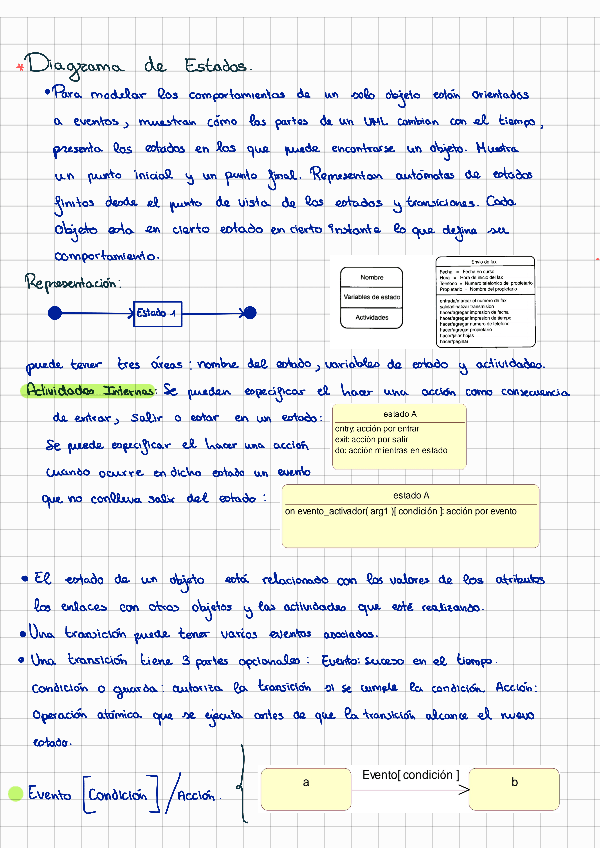 * Diagrama de Estados.
• Para modelar los comportamientos de un solo objeto están orientados
a eventos, muestran cómo las partes de un UML cambian con el tiempo,
presenta los estados en los que puede encontrarse un objeto. Muestra
un punto inicial y un punto final. Representan autómatas de estados
finitos desde el punto de vista de los estados y transiciones. Cada
objeto esta en cierto estado en cierto instante lo que define su
comportamiento.
Representación:
Estado 1
Nombre
Variables de estado
Actividades
Envío de fax
Fecha = Fecha en curso
Hora = Hora de inicio del fax
Teléfono = Número telefónico del propietario
Propietario = Nombre del propietario
entrada/marcar el número de fax
hacer/agregar impresión de fecha
hacer/agregar impresión de tiempo
hacer/agregar número de teléfono
hacer/agregar propietario
hacer/jalar hojas
hacer/paginar
puede tener tres áreas: nombre del estado, variables de estado y actividades.
Actividades Internas: Se pueden especificar el hacer una acción como consecuencia
de entrar, salir o estar en un estado:
estado A
entry: acción por entrar
exit: acción por salir
do: acción mientras en estado
Se puede especificar el hacer una acción
cuando ocurre en dicho estado un evento
que no conlleva salir del estado:
estado A
on evento_activador( arg1 )[ condición ]: acción por evento
• El estado de un objeto está relacionado con los valores de los atributos
los enlaces con otros objetos y las actividades que esté realizando.
• Una transición puede tener varios eventos asociados.
• Una transición tiene 3 partes opcionales: Evento: suceso en el tiempo.
Condición o guarda: autoriza la transición si se cumple la condición. Acción:
Operación atómica que se ejecuta antes de que la transición alcance el nuevo
estado.
Evento [Condición] / Acción.
a
Evento[ condición ]
b